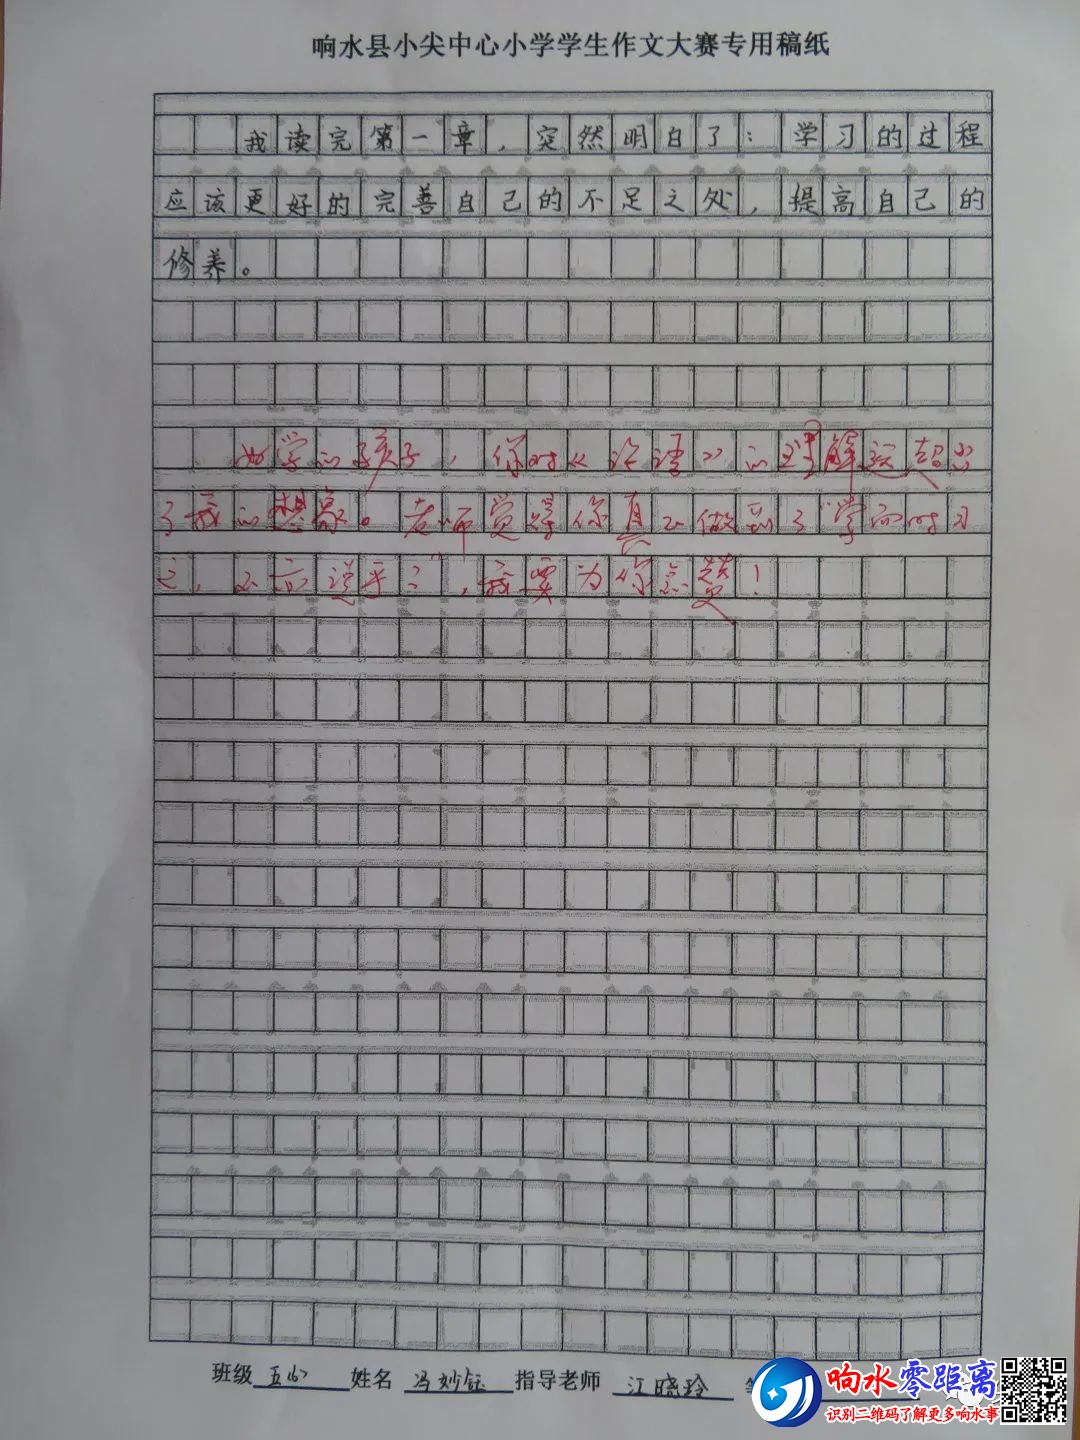 响水县小尖中心小学学生作文大赛专用稿纸
我读完第一章，突然明白了：学习的过程
应该更好的完善自己的不足之处，提高自己的
修养。
好学的孩子，你对《论语》的理解远超出
了我的想象。老师觉得你真正做到了“学而时习
之，不亦说乎？”，我要为你点赞！
班级 姓名 冯妙钰 指导老师 江晓玲
响水零距离
识别二维码了解更多响水事